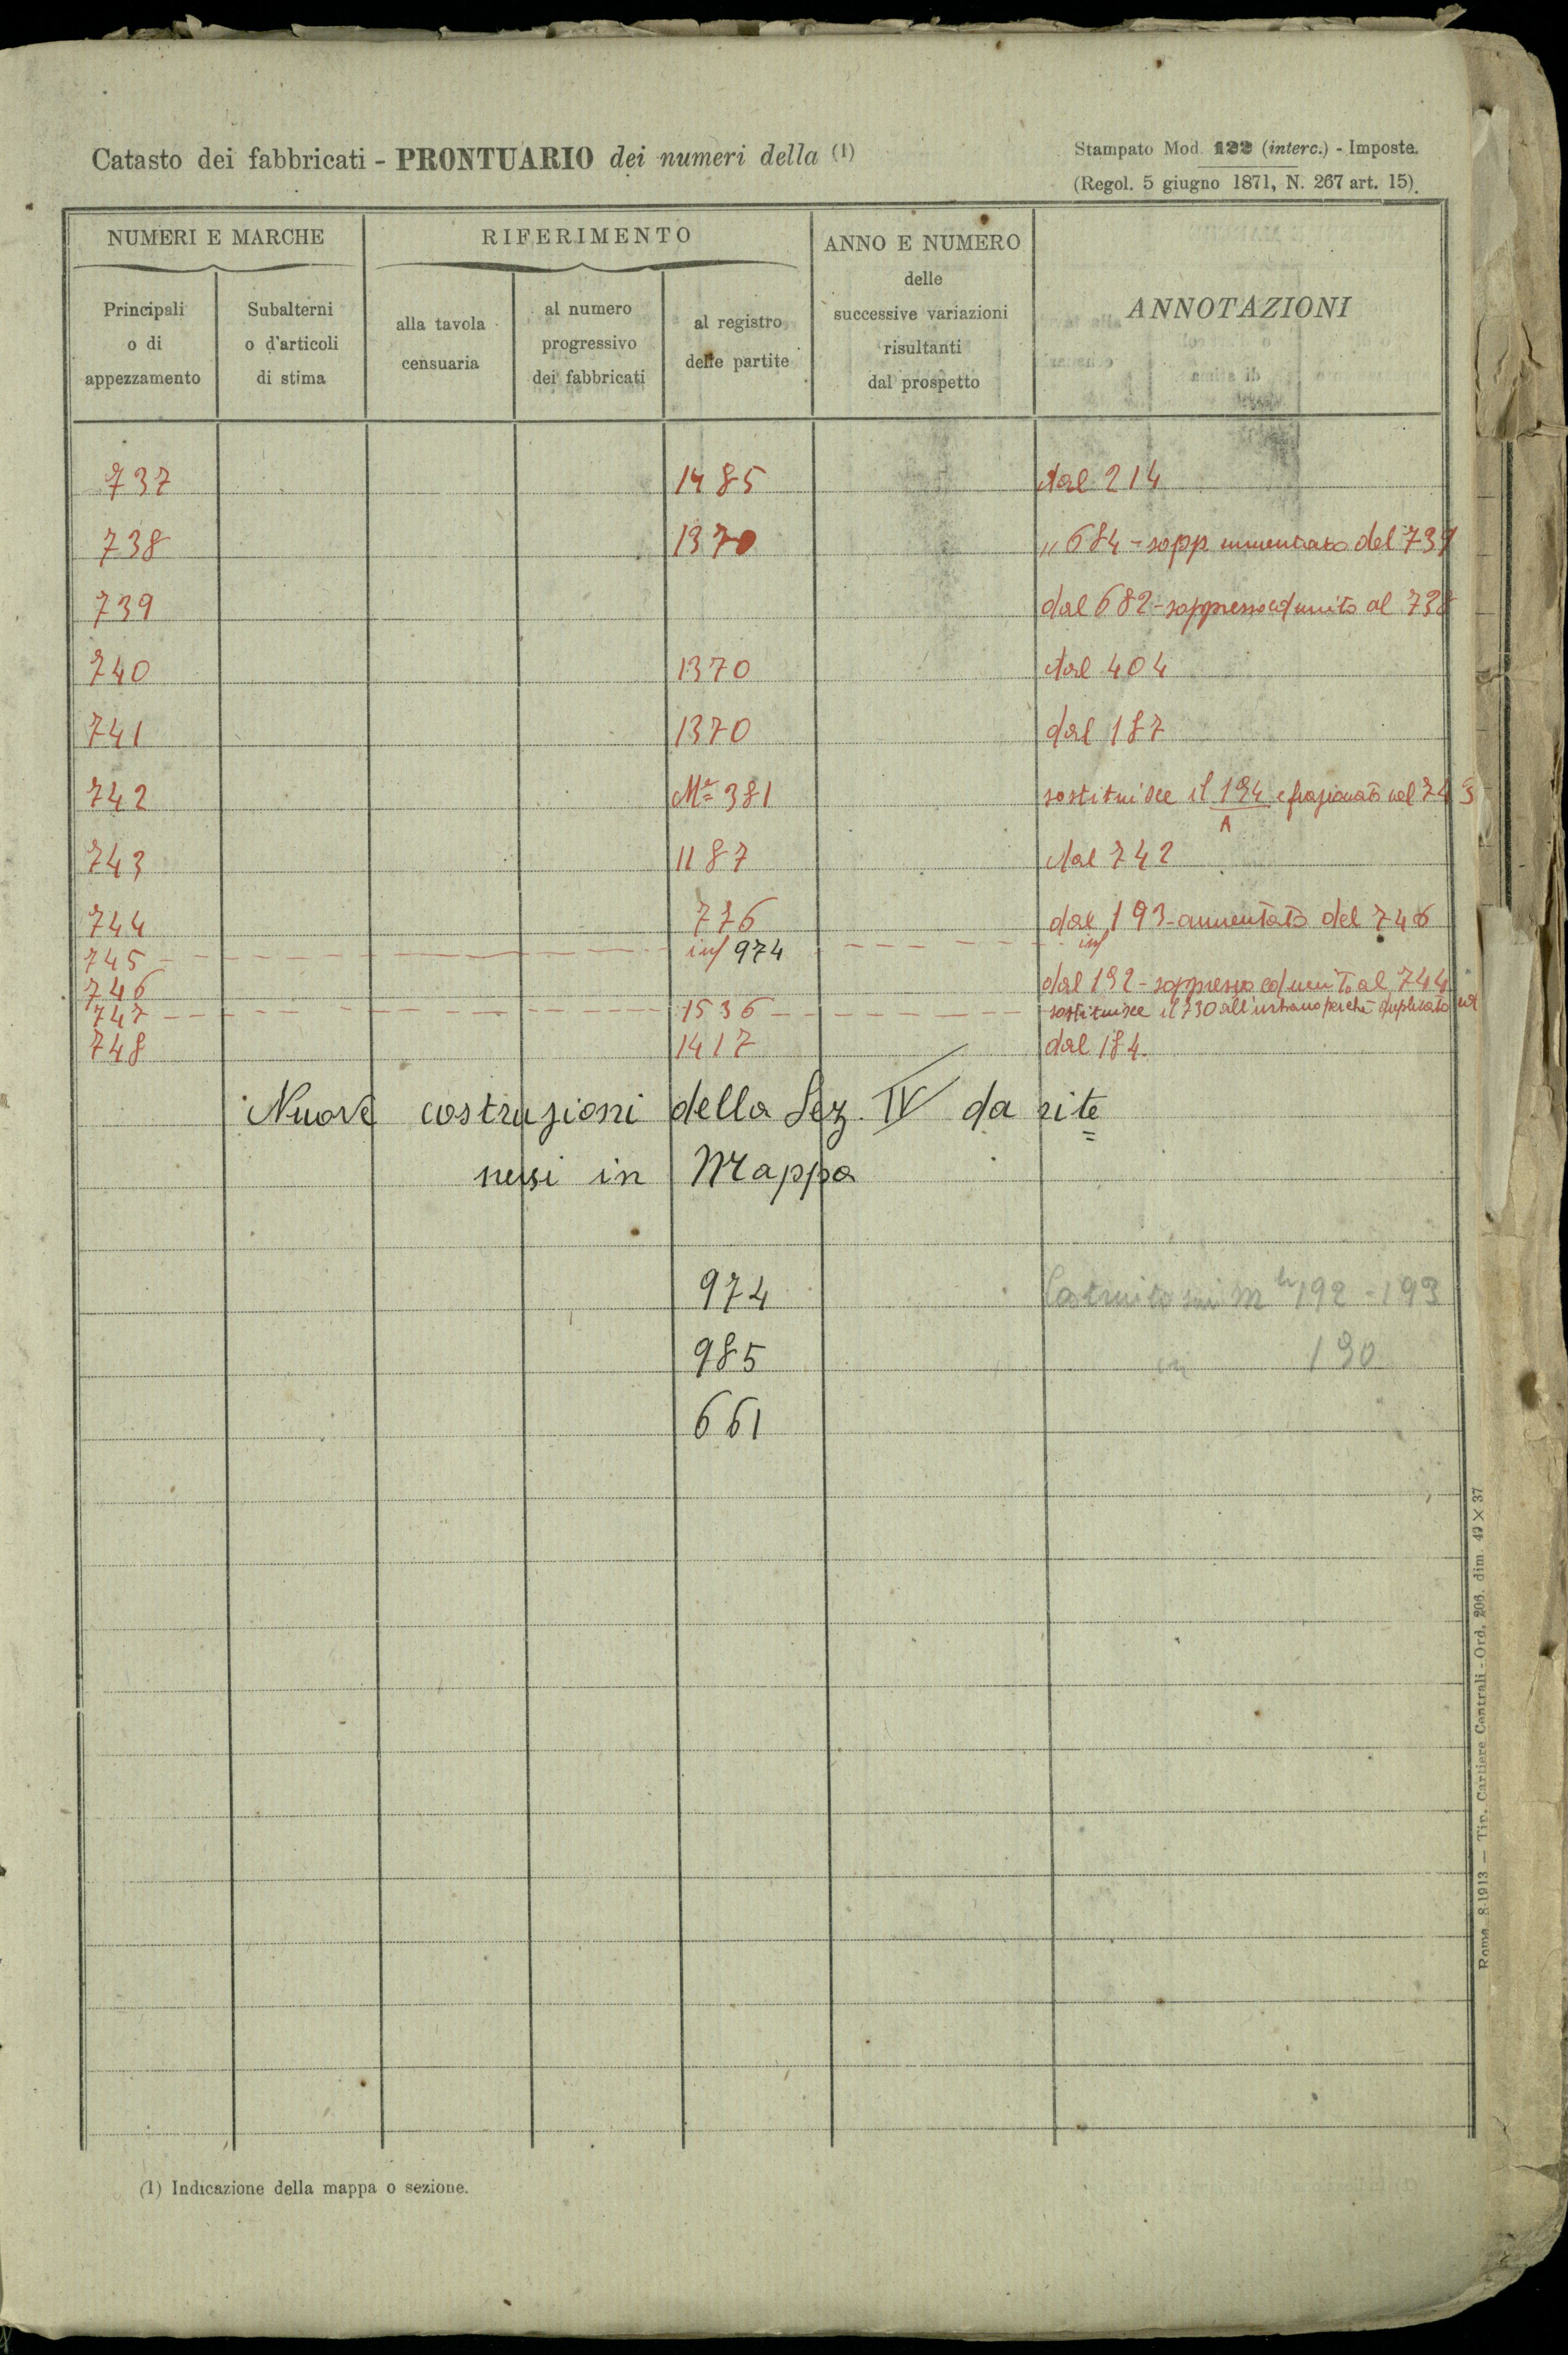 Catasto dei fabbricati - PRONTUARIO dei numeri della (1)
Stampato Mod. 122 (interc.) - Imposte.
(Regol. 5 giugno 1871, N. 267 art. 15).
NUMERI E MARCHE
RIFERIMENTO
ANNO E NUMERO
delle
successive variazioni
risultanti
dal prospetto
ANNOTAZIONI
Principali
o di
appezzamento
Subalterni
o d'articoli
di stima
alla tavola
censuaria
al numero
progressivo
dei fabbricati
al registro
delle partite
737 1485 dal 214
738 1370 " 684 - sopp aumentato del 739
739 dal 682 - soppresso ed unito al 738
740 1370 dal 404
741 1370 dal 187
742 381 sostituisce il 194 e frazionato nel 743
A
743 1187 dal 742
744 776 dal 193 - aumentato del 746
745 inf 974 inf
746 dal 192 - soppresso ed unito al 744
747 1536 sostituisce il 730 all'urbano perchè duplicato
748 1417 dal 184.
Nuove costruzioni della Sez. IV da rite=
nersi in Mappa
974 192 - 193
985 190
661
Roma, 8-1913 — Tip. Cartiere Centrali - Ord. 206. dim. 49 × 37
(1) Indicazione della mappa o sezione.